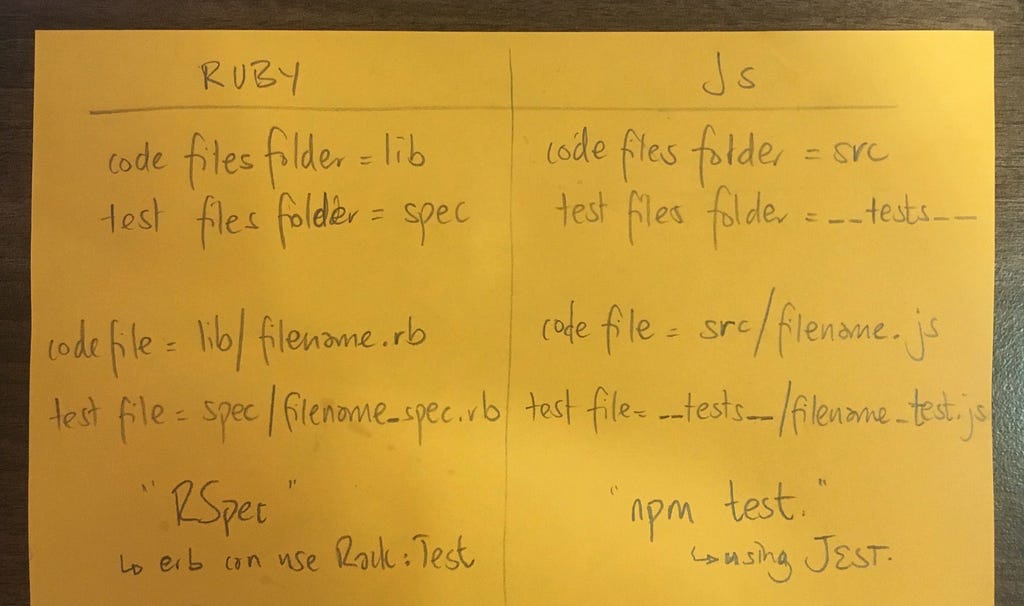 RUBY
code files folder = lib
test files folder = spec
code file = lib/filename.rb
test file = spec/filename_spec.rb
"RSpec"
↳ erb can use Rack:Test
Js
code files folder = src
test files folder = __tests__
code file = src/filename.js
test file= __tests__/filename_test.js
"npm test."
↳ using JEST.